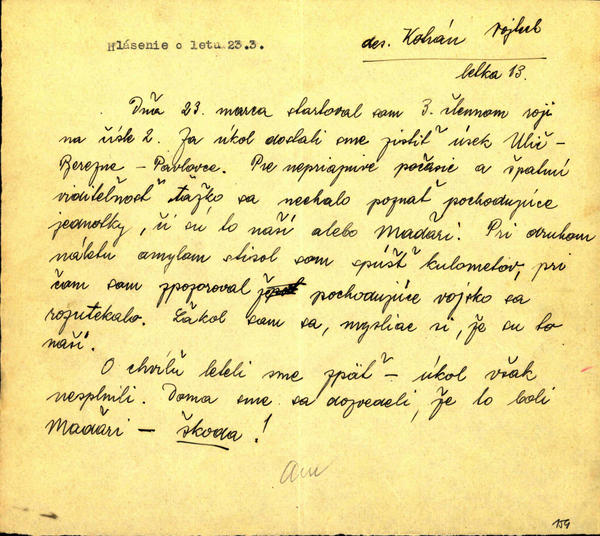 Hlásenie o letu 23.3.
des. Kohán Vojtech
letka 13.
Dňa 23. marca startoval som 3. člennom roji
na čísle 2. Za úkol dostali sme zistiť úsek Ulič –
Berezne – Pavlovce. Pre nepriaznivé počasie a špatnú
viditeľnosť ťažko sa nechalo poznať pochodujúce
jednotky, či sú to naší alebo Maďari. Pri druhom
náletu omylom stisol som spúšť kulometov, pri
čom som zpozoroval že pochodujúce vojsko sa
rozutekalo. Ľakol som sa, mysliac si, že su to
naší.
O chvíľu leteli sme zpäť – úkol však
nesplnili. Doma sme sa dozvedeli, že to boli
Maďari – škoda!
159